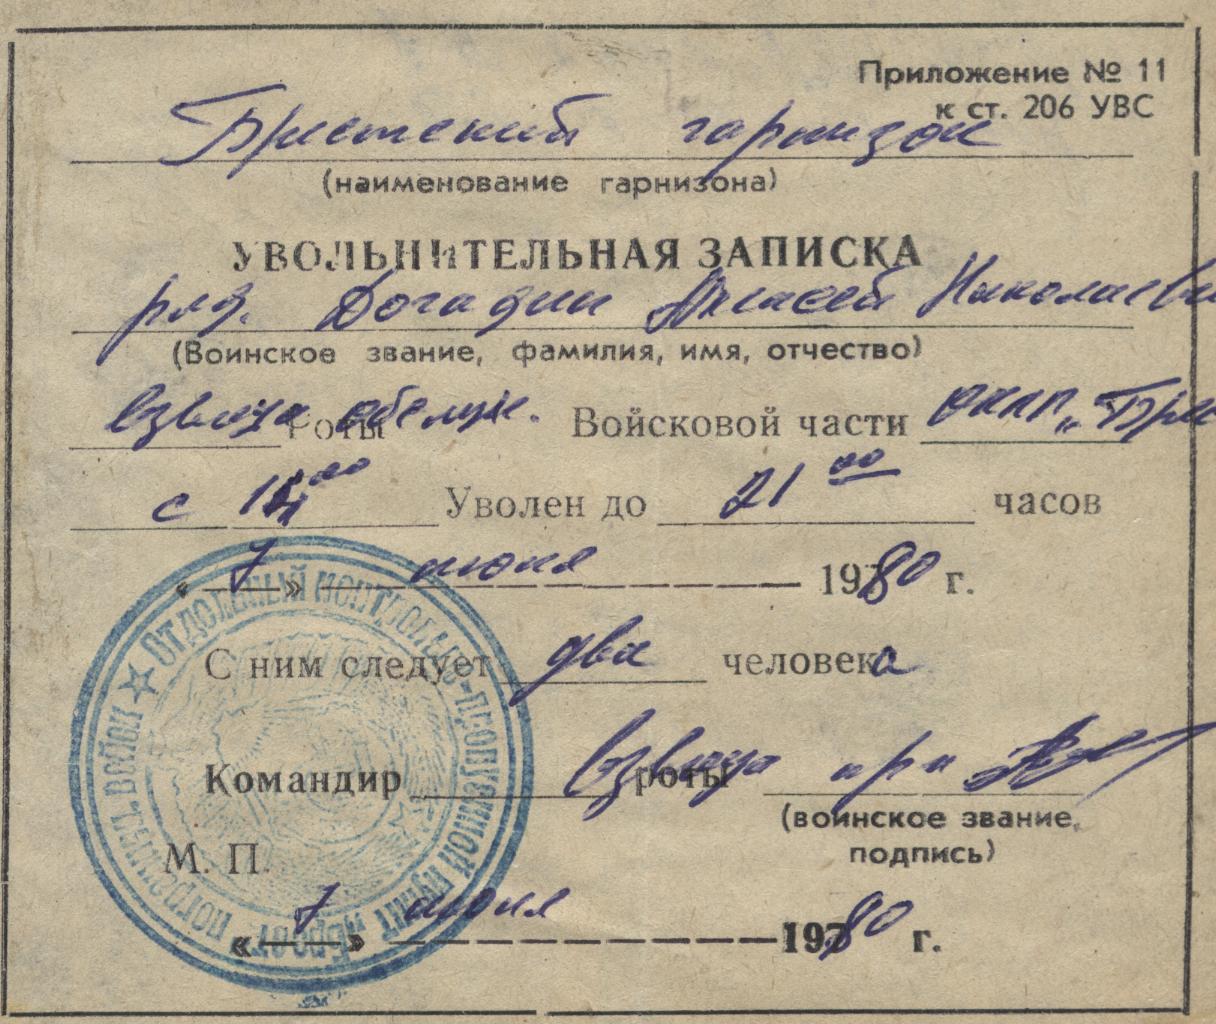 Приложение № 11
к ст. 206 УВС
Брестский гарнизон
(наименование гарнизона)
УВОЛЬНИТЕЛЬНАЯ ЗАПИСКА
ряд. Догадин Алексей Николаеви
(Воинское звание, фамилия, имя, отчество)
взвода Роты Войсковой части ОКПП „Брес
с 14⁰⁰ Уволен до 21⁰⁰ часов
« 7 » июня 1980 г.
С ним следует два человека
Командир взвода роты пр-к
(воинское звание,
подпись)
М. П.
« 7 » июня 1980 г.
ОТДЕЛЬНЫЙ КОНТРОЛЬНО-ПРОПУСКНОЙ ПУНКТ „БРЕСТ" ПОГРАНИЧН. ВОЙСК